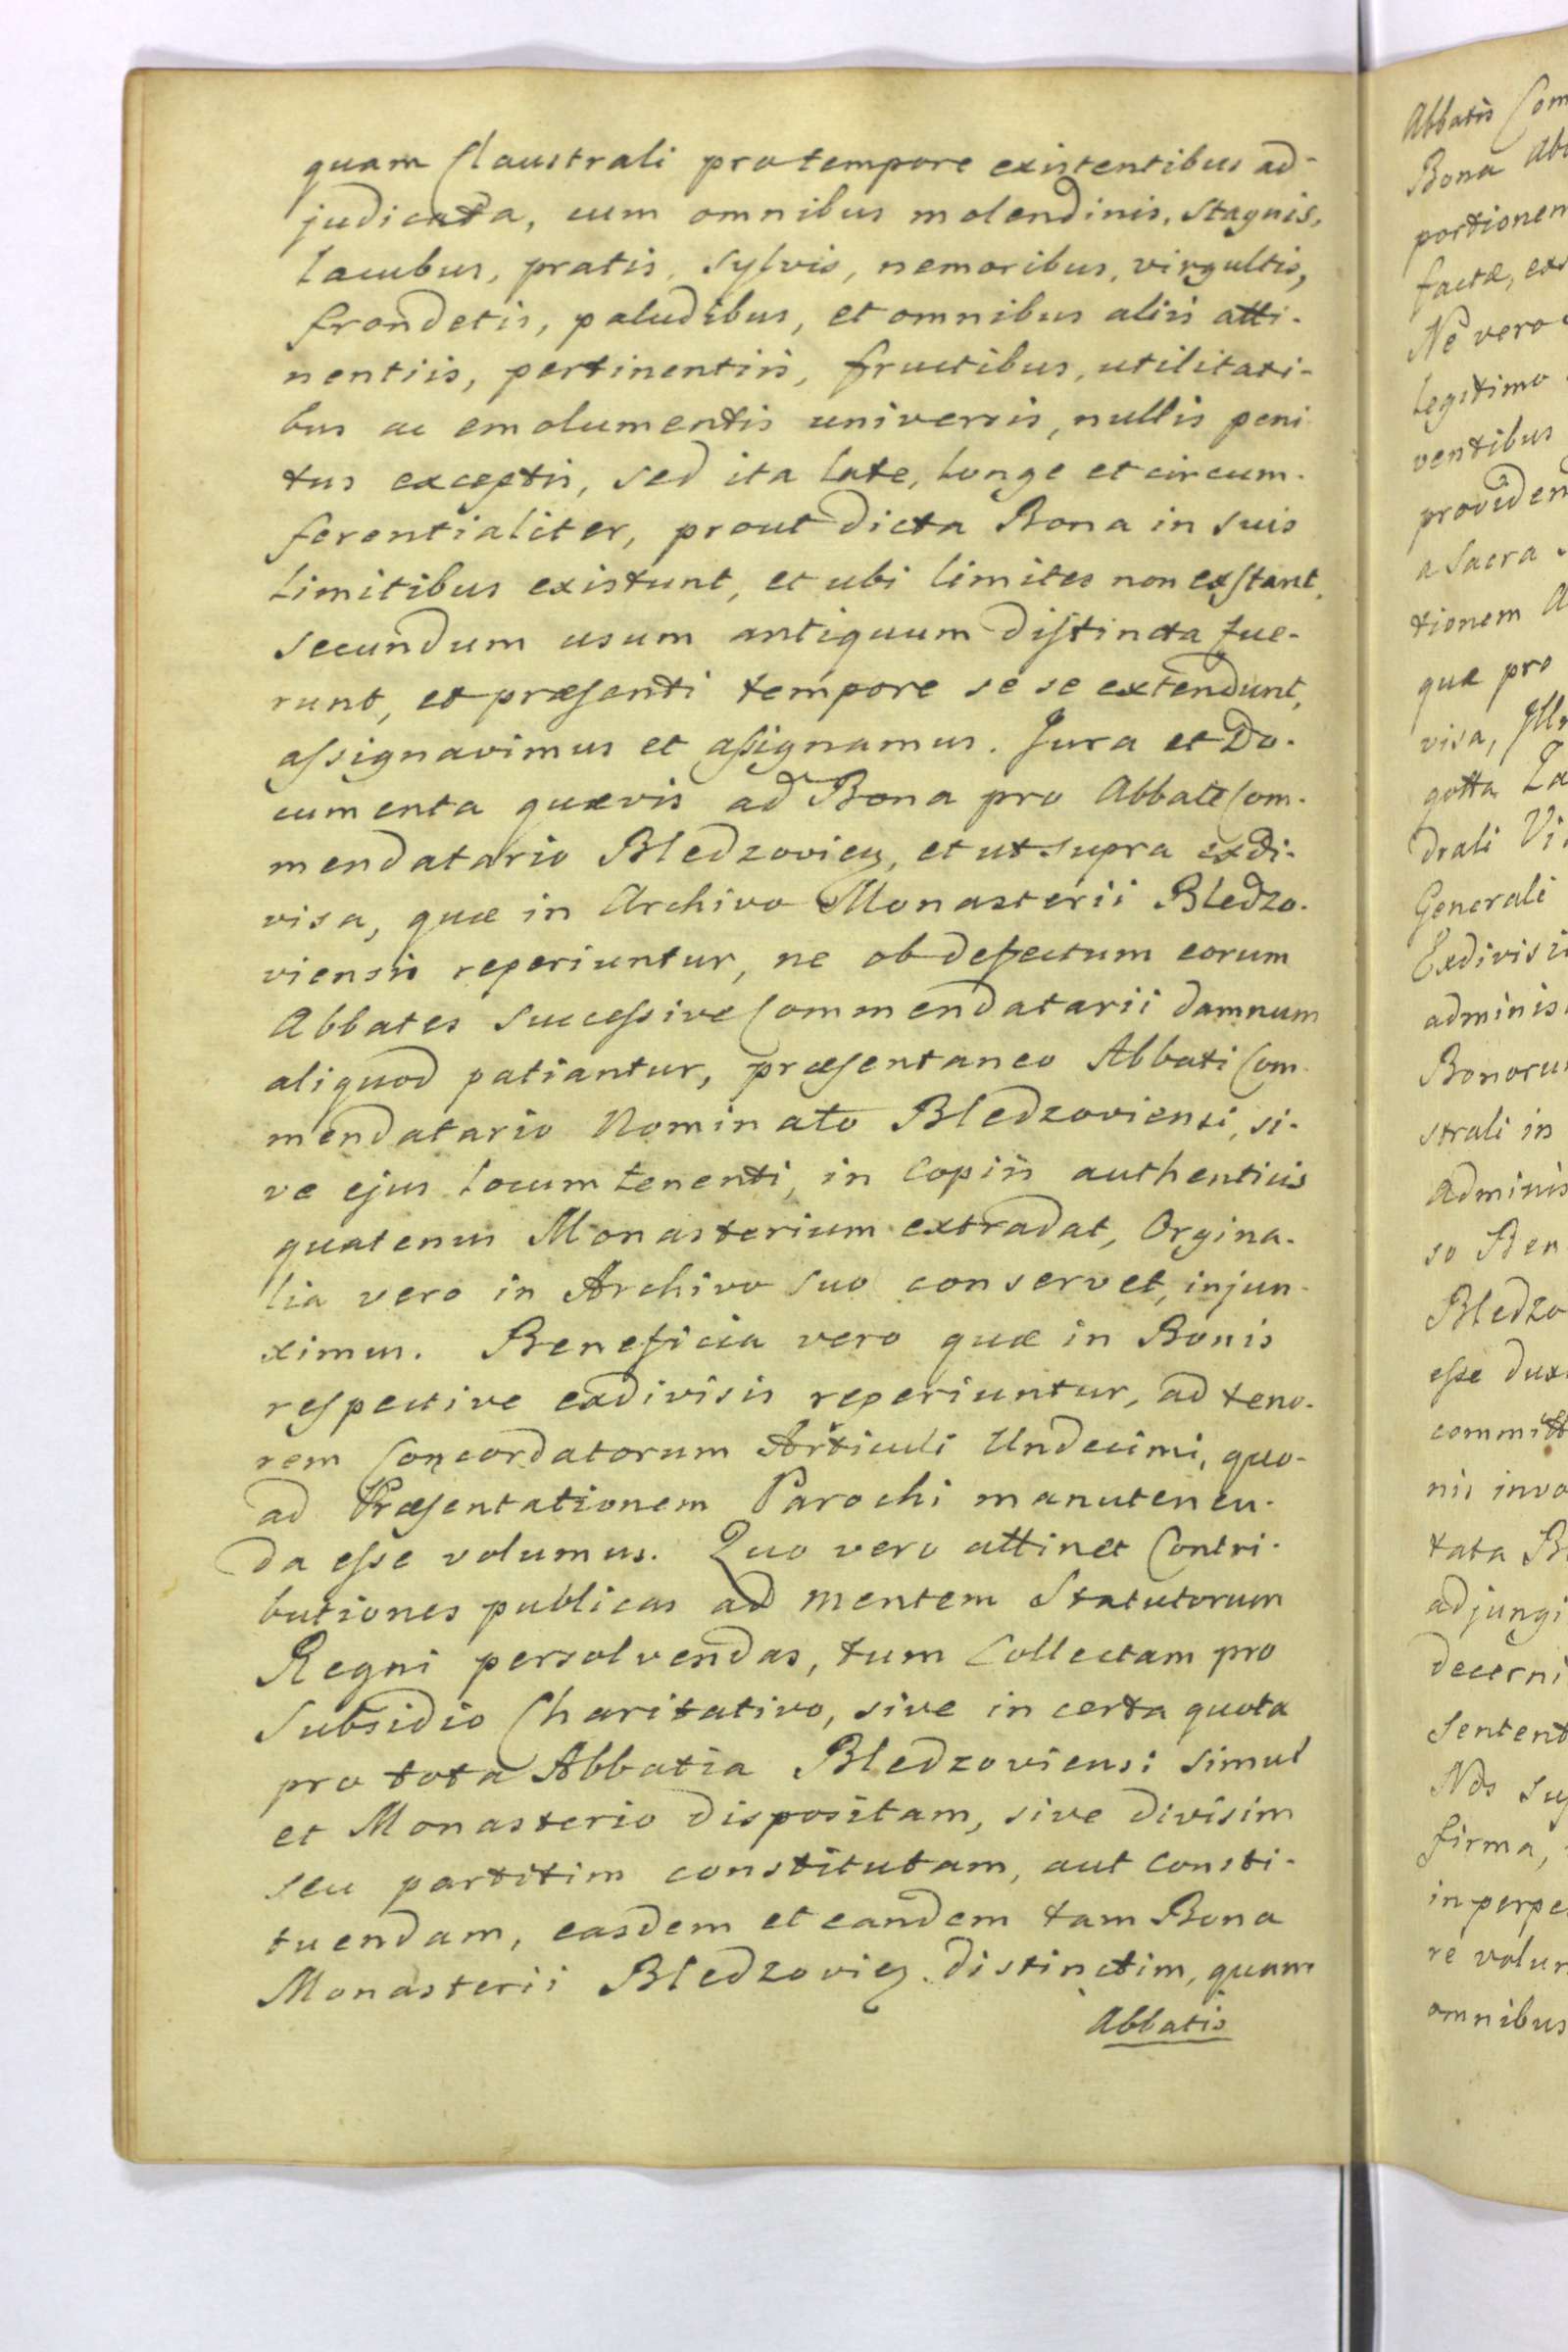 quam Claustrali pro tempore existentibus ad-
judicata, cum omnibus molendinis, Stagnis,
lacubus, pratis, Sylvis, nemoribus, virgultis,
frondetis, paludibus, et omnibus aliis atti-
nentiis, pertinentiis, fructibus, utilitati-
bus ac emolumentis universis, nullis peni
tus exceptis, sed ita late, longe et circum-
ferentialiter, prout dicta Bona in suis
limitibus existunt, et ubi limites non exstant,
secundum usum antiquum distincta fue-
runt, et præsenti tempore se se extendunt,
assignavimus et assignamus. Jura et Do-
cumenta quævis ad Bona pro Abbate Com-
mendatario Bledzovien, et ut supra exdi-
visa, quæ in Archivo Monasterii Bledzo-
viensis reperiuntur, ne ob defectum eorum
Abbates successive Commendatarii damnum
aliquod patiantur, præsentaneo Abbati Com-
mendatario Nominato Bledzoviensi, si-
ve ejus locum tenenti, in Copiis authenticis
quatenus Monasterium extradat, Orgina-
lia vero in Archivo suo conservet, injun-
ximus. Beneficia vero quæ in Bonis
respective exdivisis reperiuntur, ad teno-
rem Concordatorum Articuli Undecimi, quo-
ad Præsentationem Parochi manutenen-
da esse volumus. Quo vero attinet Contri-
butiones publicas ad mentem Statutorum
Regni persolvendas, tum Collectam pro
Subsidio Charitativo, sive in certa quota
pro tota Abbatia Bledzoviensi simul
et Monasterio dispositam, sive divisim
seu partitim constitutam, aut consti-
tuendam, easdem et eandem tam Bona
Monasterii Bledzovien. distinctim, quam
Abbatis
Abbatis Com
Bona Ab
portionem
factæ, ex
Ne vero
legitimo
ventibus
providen
a Sacra
tionem A
quæ pro
visa, Ill
gotta La
drali Vi
Generali
Exdivisi
adminis
Bonoru
strali in
adminis
so Ben
Bledzo
esse dux
committ
nii invo
tata B
adjungi
decerni
Sentent
Nos su
firma,
in perpe
re volu
omnibus